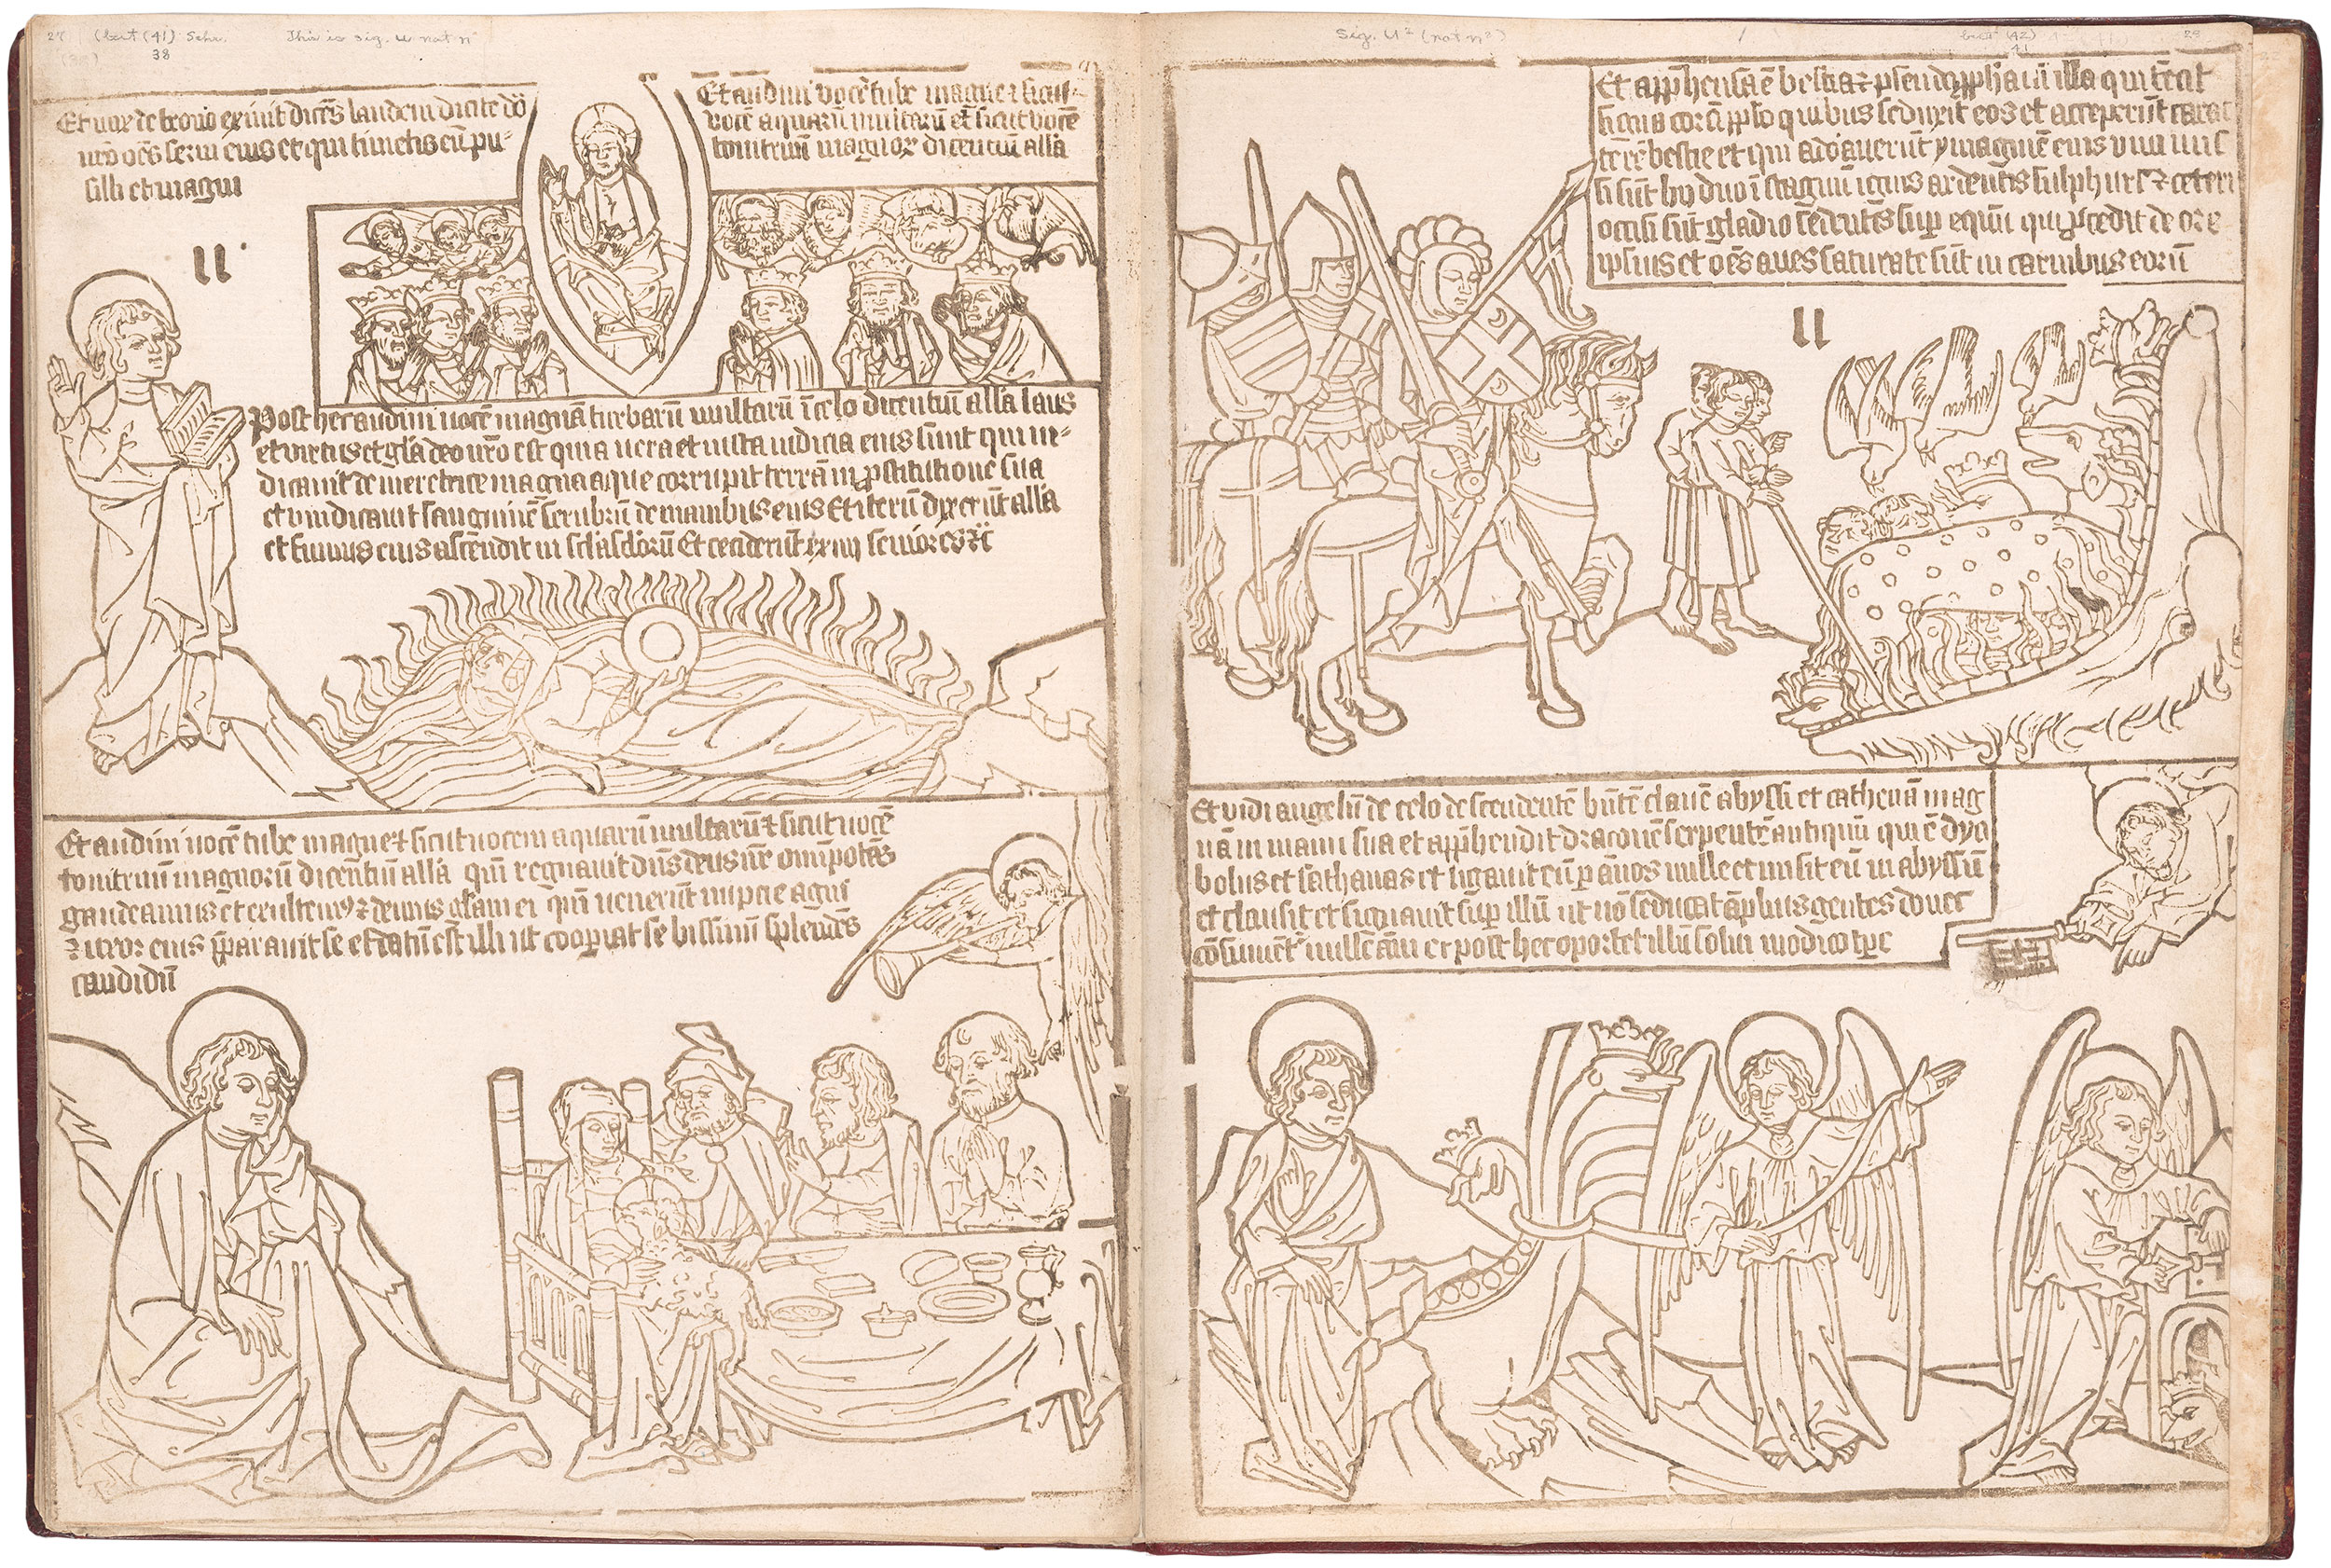 27 (but (41) Schr. This is sig. u not n
(38) 38
Et vox de trono exivit dicēs laudem dicite dō
nrō oēs servi eius et qui timetis eū pu-
silli et magni
Et audivi vocē tube magne ⁊ sicut
vocē aquarū multarū et sicut vocē
tonitruū magnoꝝ dicentiū allā
u
Post hec audivi vocē magnā turbarū multarū ī celo dicentiū allā laus
et virtus et glā deo nrō est quia vera et iusta iudicia eius sunt qui iu-
dicavit de meretrice magna que corrupit terrā in ꝓstitutione sua
et vindicavit sanguinē servorū de manibus eius Et iterū dixerūt allā
et fumus eius ascendit in sclā sclorū Et ceciderūt xxiiij seniores ⁊c̄
Et audivi vocē tube magne ⁊ sicut vocem aquarū multarū ⁊ sicut vocē
tonitruū magnorū dicentiū allā qm̄ regnavit dn̄s deus nr̄ omīpotēs
gaudeamus et exultemꝰ ⁊ demus glam ei qm̄ venerūt nupcie agni
⁊ uxor eius p̄paravit se et datū est illi ut cooꝑiat se bissinū splēdēs
candidū
Sig. U² (not n²)
but (42) 28
41
Et app̄hensa ē bestia ⁊ pseudopp̄ha cū illa qui fecit
signa corā ip̄so quibus seduxit eos et acceperūt carac
terē bestie et qui adoraverūt ymaginē eius vivi mis
si sūt hij duo ī stagnū ignis ardentis sulphuris ⁊ ceteri
occisi sūt gladio sedentis suꝑ equū qui ꝓcedit de ore
ipsius et oēs aves saturate sūt in carnibus eorū
u
Et vidi angelū de celo descendentē hn̄tē clavē abyssi et cathenā mag
nā in manu sua et app̄hendit draconē serpentē antiquū qui ē dya
bolus et sathanas et ligavit eū ꝑ ānos mille et misit eū in abyssū
et clausit et signavit suꝑ illū ut nō seducat āplius gentes donec
cōsumēt᷑ mille āni et post hec oportet illū solui modico tꝑe